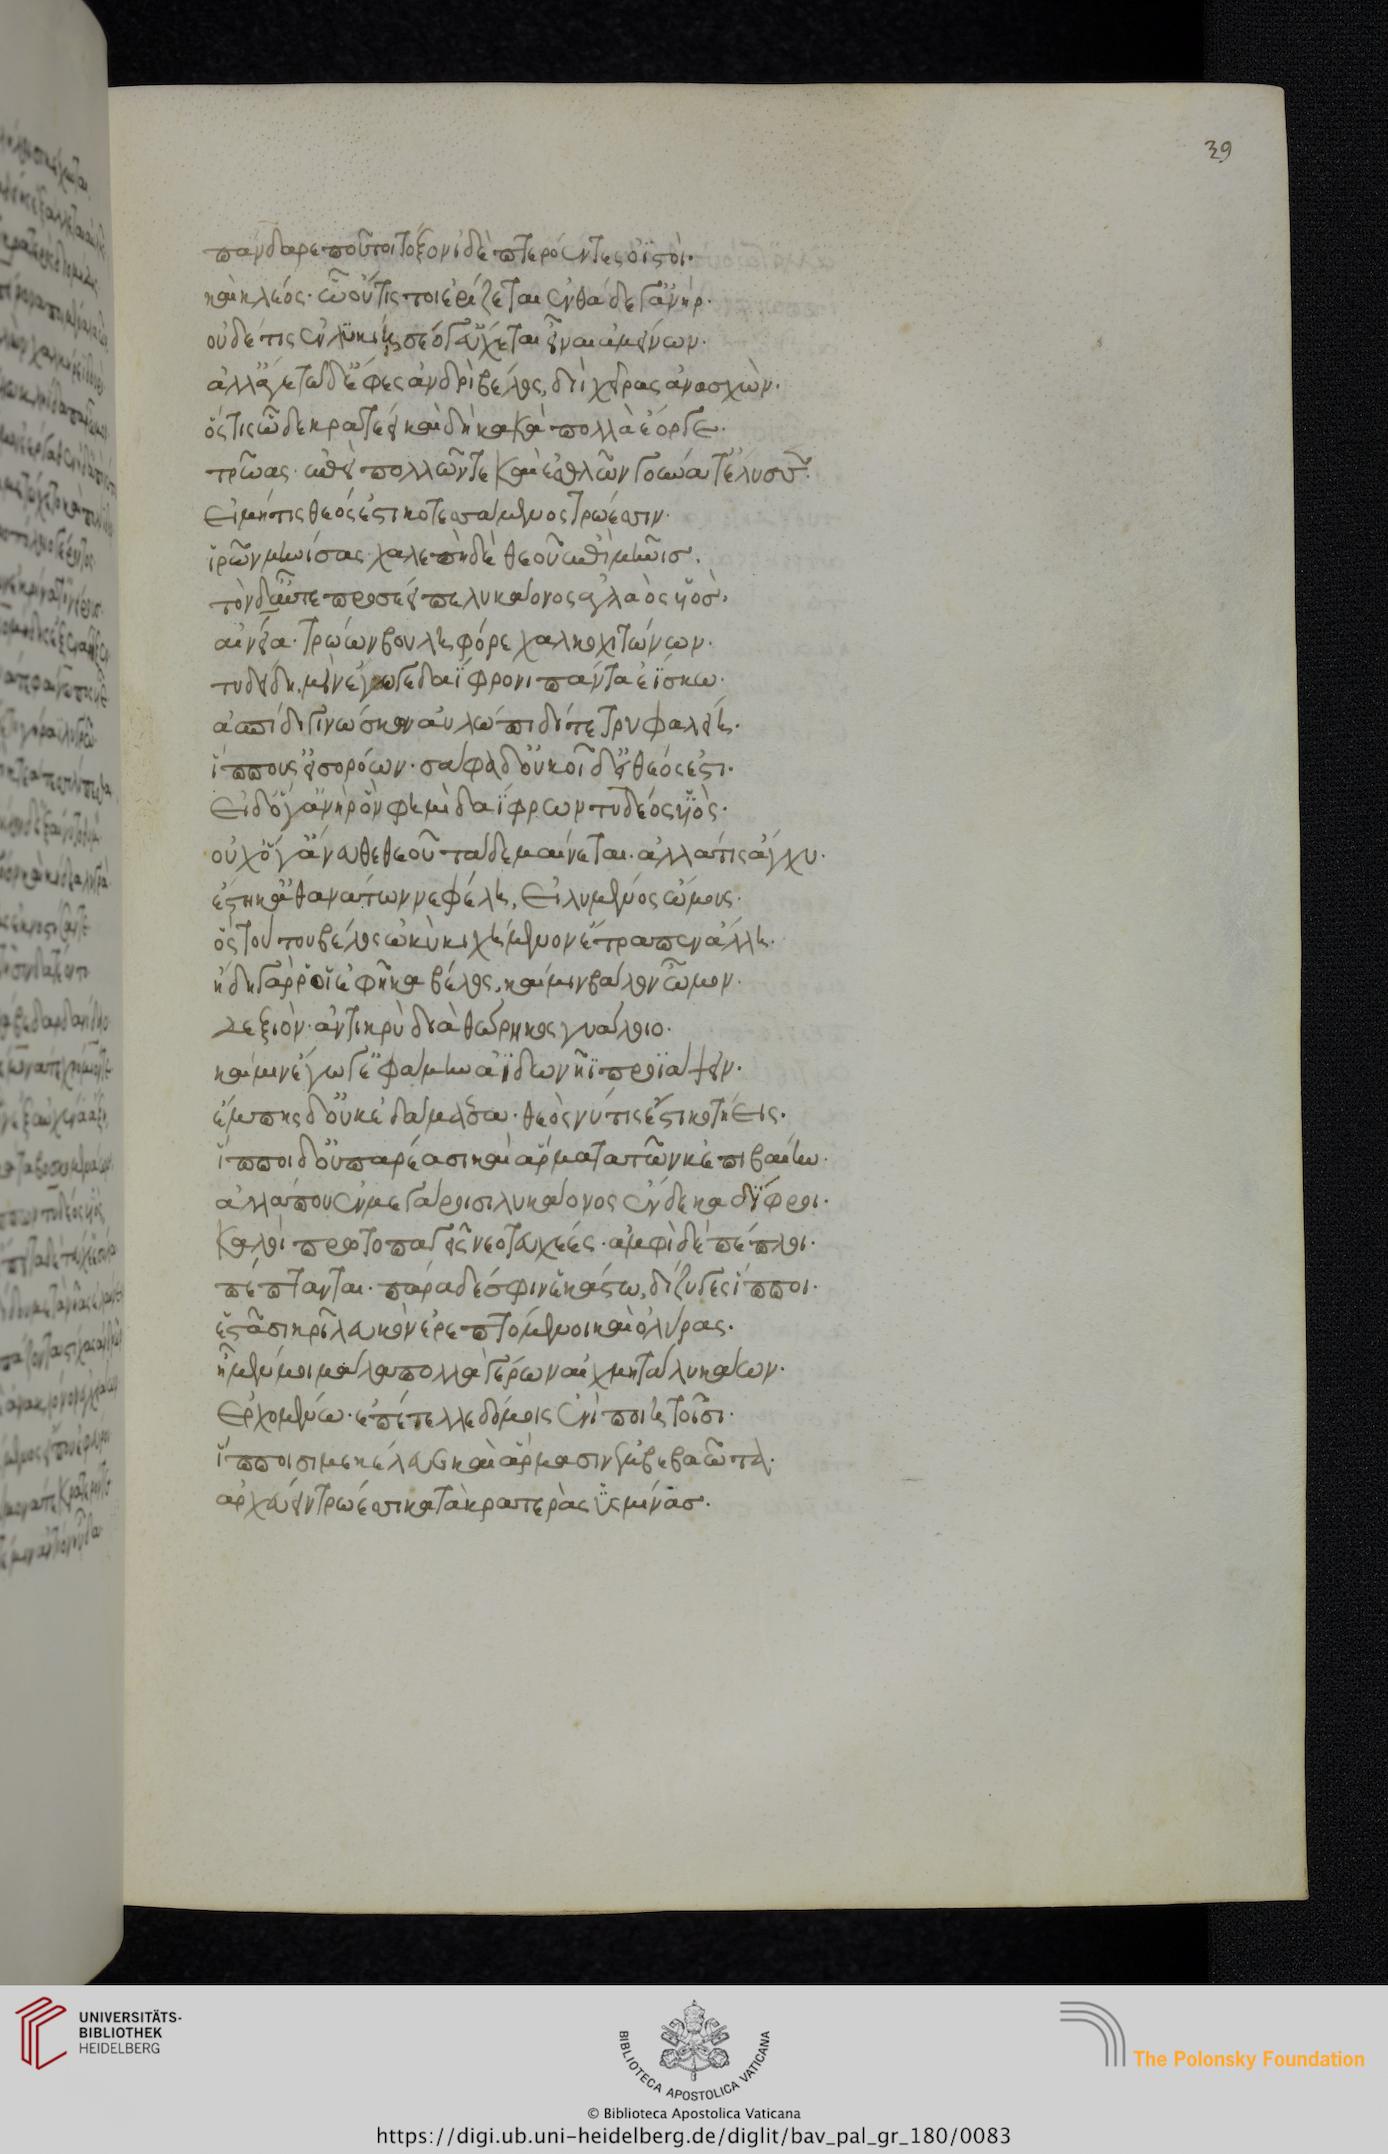 39
πάνδαρε ποῦ τοι τόξον ἰδὲ πτερόεντες ὀϊστοὶ·
καὶ κλέος· ὧ οὔτις τοι ἐρίζεται ἐνθάδέ γ' ἀνὴρ·
οὐδέ τις ἐν λυκίη σέο γ' εὔχεται εἶναι ἀμείνων·
ἀλλ' ἄγε τῶδ' ἔφες ἀνδρὶ βέλος, διὶ χεῖρας ἀνασχὼν·
ὅστις ὧδε κρατέει καὶ δὴ κακὰ πολλὰ ἔοργε·
τρῶας· ἐπεὶ πολλῶν τε καὶ ἐσθλῶν γούνατ' ἔλυσεν·
εἰ μή τις θεός ἐστι κοτεσσάμενος τρώεσσιν·
ἱρῶν μηνίσας· χαλεπὴ δὲ θεοῦ ἔπι μῆνις.
τὸν δ' αὖτε προσέειπε λυκάονος ἀγλαὸς υἱὸς·
αἰνεία· τρώων βουληφόρε χαλκοχιτώνων·
τυδείδη μιν ἔγωγε δαΐφρονι πάντα ἐΐσκω·
ἀσπίδι γινώσκων αὐλώπιδί τε τρυφαλείη·
ἵππους τ' εἰσορόων· σάφα δ' οὐκ οἶδ' εἰ θεός ἐστι·
εἰ δ' ὅ γ' ἀνὴρ ὅν φημι δαΐφρων τυδέος υἱὸς·
οὐχ ὅ γ' ἄνευθε θεοῦ τάδε μαίνεται· ἀλλά τις ἄγχυ·
ἕστηκ' ἀθανάτων νεφέλη, εἰλυμένος ὤμους·
ὃς τούτου βέλος ὠκὺ κιχήμενον ἔτραπεν ἄλλη·
ἤδη γάρ ῥ οἱ ἐφῆκα βέλος, καί μιν βάλον ὦμον·
δεξιὸν· ἀντικρὺ διὰ θώρηκος γυάλοιο·
καί μιν ἔγωγ' ἐφάμην ἀϊδωνῆϊ προϊάψειν·
ἔμπης δ' οὐκ ἐδάμασσα· θεός νύ τίς ἐστι κοτήεις·
ἵπποι δ' οὐ παρέασι καὶ ἅρματα τῶν κ' ἐπιβαίην·
ἀλλά που ἐν μεγάροισι λυκάονος ἕνδεκα δίφροι·
καλοὶ πρωτοπαγεῖς νεοτευχέες· ἀμφὶ δὲ πέπλοι·
πέπτανται· παρὰ δέ σφιν ἑκάστω, δίζυγες ἵπποι·
ἑστᾶσι κρῖ λευκὸν ἐρεπτόμενοι καὶ ὀλύρας·
ἦ μέν μοι μάλα πολλὰ γέρων αἰχμητὰ λυκάων·
ἐρχομένω· ἐπέτελλε δόμοις ἐνὶ ποιητοῖσι·
ἵπποισί με κέλευε καὶ ἅρμασιν ἐμβεβαῶτα·
ἀρχεύειν τρώεσσι κατὰ κρατερὰς ὑσμίνας·
UNIVERSITÄTS-
BIBLIOTHEK
HEIDELBERG
BIBLIOTECA APOSTOLICA VATICANA
The Polonsky Foundation
© Biblioteca Apostolica Vaticana
https://digi.ub.uni-heidelberg.de/diglit/bav_pal_gr_180/0083